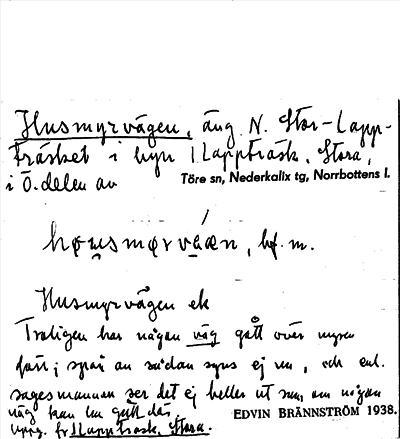 Husmyrvägen, äng N. Stor-Lapp-
träsket i byn 1 Lappträsk, Stora,
i Ö.delen av Töre sn, Nederkalix tg, Norrbottens l.
bf. m.
Husmyrvägen ek
Troligen har någon väg gått över myren
förr; spår av sådan syns ej nu, och enl.
sagesmannen ser det ej heller ut som om någon
väg kan ha gått där,
uppg. fr 1 Lappträsk, Stora.
EDVIN BRÄNNSTRÖM 1938.